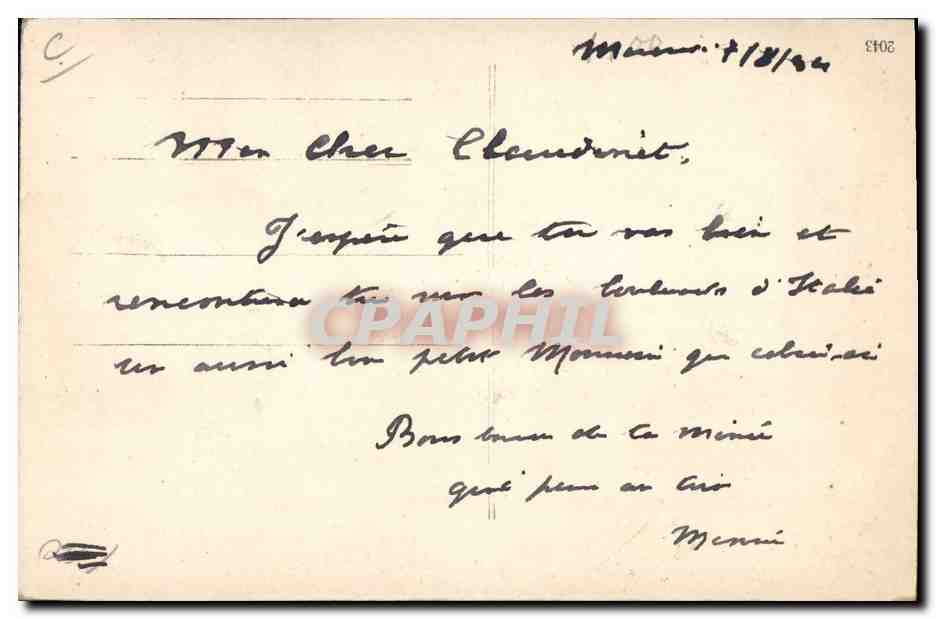 7/8/34
2043
C.
Mon cher Claudinet,
J'espère que tu vas bien et
rencontrera tu sur les boulevards d'Italie
un aussi bon petit Monsieur que celui-ci
Bons baisers de ta Mimie
qui pense au tiro
Mimie
CPAPHIL